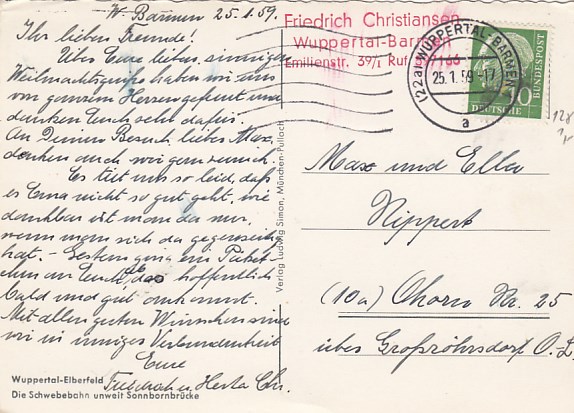 W. Barmen 25.1.59.
Ihr lieben Freunde!
Über Eure lieben, sinnigen
Weihnachtsgrüße haben wir uns
von ganzem Herzen gefreut und
danken Euch sehr dafür.
An Deinen Besuch, lieber Max,
denken auch wir gern zurück.
Es tut uns so leid, daß
es Erna nicht so gut geht, wie
dankbar ist man da nur,
wenn man sich da gegenseitig
hat. - Gestern ging ein Paket
an Euch ab, das hoffentlich
bald und gut ankommt.
Mit allen guten Wünschen sind
wir in inniger Verbundenheit
Eure
Friedrich u. Herta Chr.
Wuppertal-Elberfeld
Die Schwebebahn unweit Sonnbornbrücke
Verlag Ludwig Simon, München-Pullach
Friedrich Christiansen
Wuppertal-Barmen
Emilienstr. 39/I Ruf
(22a) WUPPERTAL-BARMEN
25.1.59-17
a
DEUTSCHE
BUNDESPOST
Max und Ella
Nippert
(10a) Ohorn Nr. 25
über Großröhrsdorf O.L.